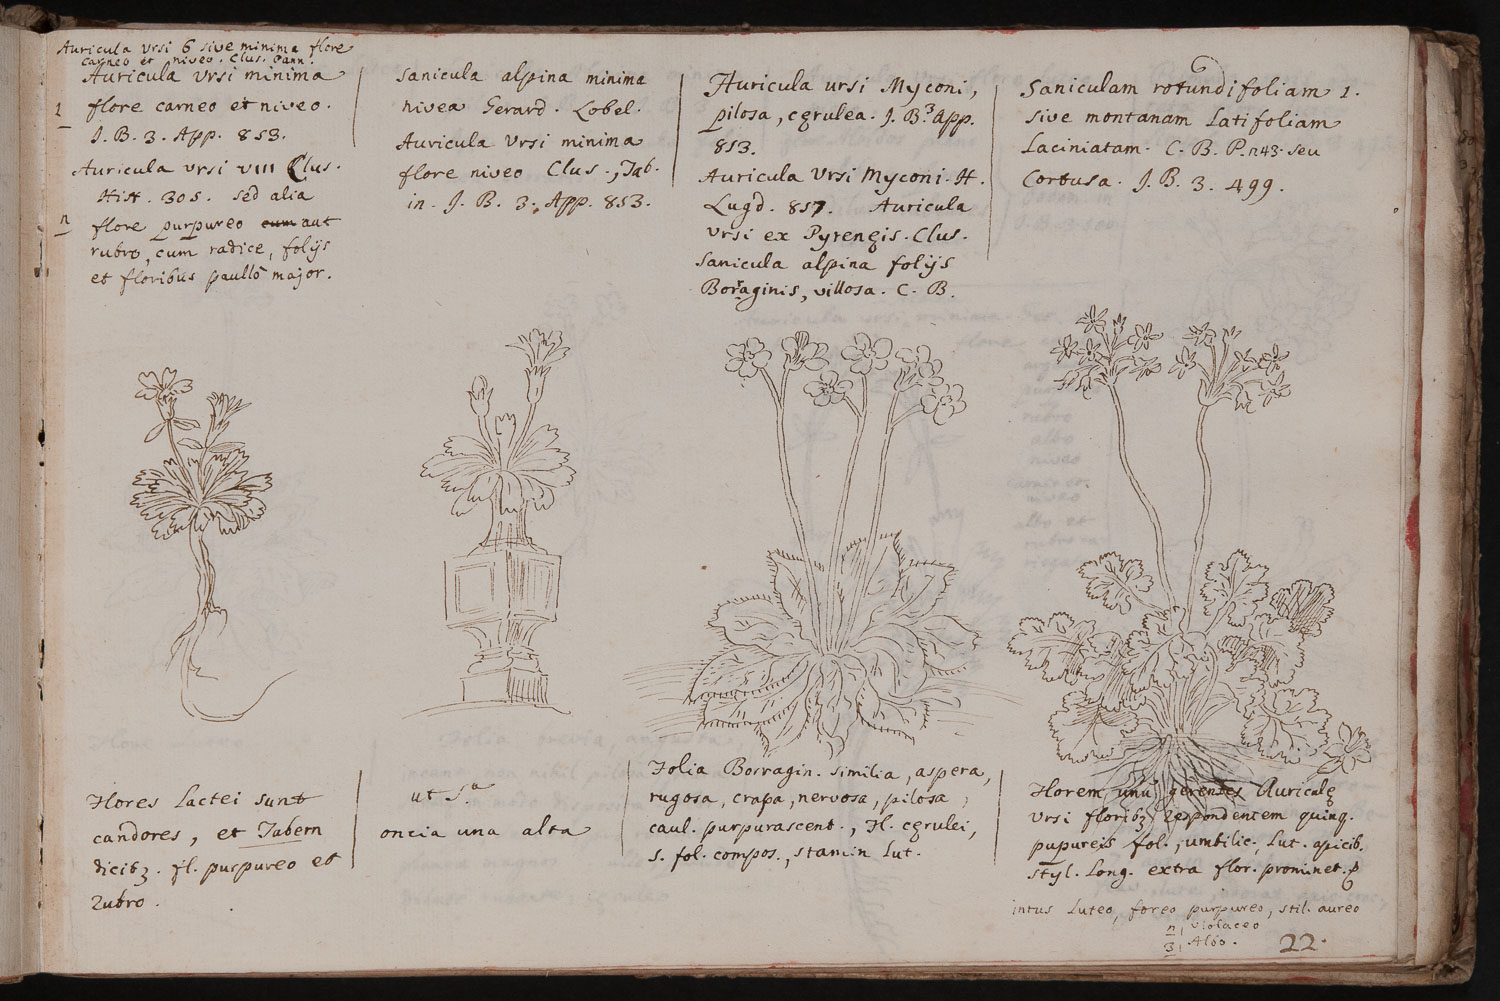 Auricula Ursi 6 sive minima flore
carneo et niveo. Clus. Pann.
Auricula Ursi minima
1 flore carneo et niveo.
J. B. 3. App. 853.
Auricula ursi VIII Clus.
Hist. 305. sed alia
n flore purpureo cum aut
rubro, cum radice, folijs
et floribus paullò major.
Sanicula alpina minima
nivea Gerard. Lobel.
Auricula Ursi minima
flore niveo Clus., Tab.
in. J. B. 3. App. 853.
Auricula ursi Myconi,
pilosa, cęrulea. J. B. 3. App.
853.
Auricula Ursi Myconi. H.
Lugd. 857. Auricula
Ursi ex Pyrenęis. Clus.
Sanicula alpina folijs
Borraginis, villosa. C. B.
Saniculam rotundifoliam 1.
sive montanam latifoliam
laciniatam. C. B. P. 243. seu
Cortusa. J. B. 3. 499.
Flores lactei sunt
candores, et Tabern
dicitz. fl. purpureo et
rubro.
ut Sa
oncia una alta
Folia Borragin. similia, aspera,
rugosa, crapa, nervosa, pilosa,
caul. purpurascent., fl. cęrulei,
5. fol. compos., stamin lut.
Florem unū gerentes Auriculę
Ursi floribz respondentem quinq.
pupureis fol., umbilic. lut. apicib.
styl. long. extra flor. prominet.
intus luteo, foreo purpureo, stil. aureo
n, violaceo
3, Albo.
22.